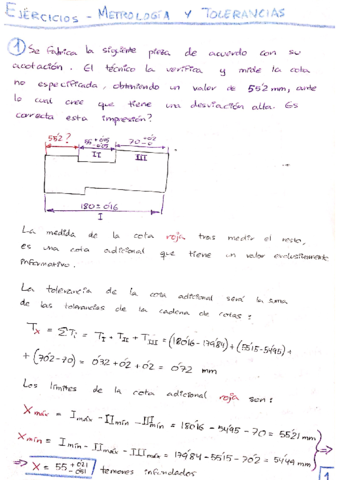 EJERCICIOS - METROLOGÍA Y TOLERANCIAS
① Se fabrica la siguiente pieza de acuerdo con su
acotación. El técnico la verifica y mide la cota
no especificada, obteniendo un valor de 55'2 mm, ante
lo cual cree que tiene una desviación alta. Es
correcta esta impresión?
55'2? 55 +0'15 -0'05 70 +0'2 -0
II III
180 ± 0'16
I
La medida de la cota roja tras medir el resto,
es una cota adicional que tiene un valor exclusivamente
informativo.
La tolerancia de la cota adicional será la suma
de las tolerancias de la cadena de cotas:
Tx = ΣTi = TI + TII + TIII = (180'16 - 179'84) + (55'15 - 54'95) +
+ (70'2 - 70) = 0'32 + 0'2 + 0'2 = 0'72 mm
Los límites de la cota adicional roja son:
Xmáx = Imáx - IImín - IIImín = 180'16 - 54'95 - 70 = 55'21 mm
Xmín = Imín - IImáx - IIImáx = 179'84 - 55'15 - 70'2 = 54'49 mm
⇒ X = 55 +0'21 -0'51 temores infundados
1